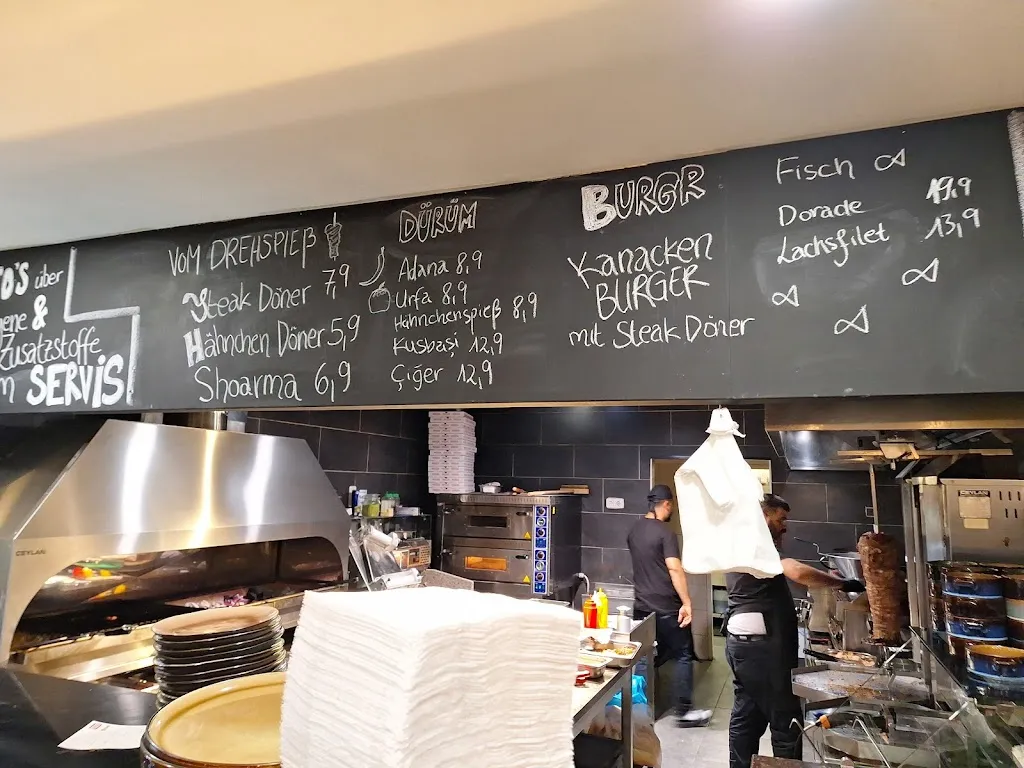 O's über
ene &
Zusatzstoffe
m SERVIS!
VOM DREHSPIEß
Steak Döner 7,9
Hähnchen Döner 5,9
Shoarma 6,9
DÜRÜM
Adana 8,9
Urfa 8,9
Hähnchenspieß 8,9
Kusbaşi 12,9
Çiğer 12,9
BURGR
Kanacken
BURGER
mit Steak Döner
Fisch
Dorade 19,9
Lachsfilet 13,9
CEYLAN
CEYLAN